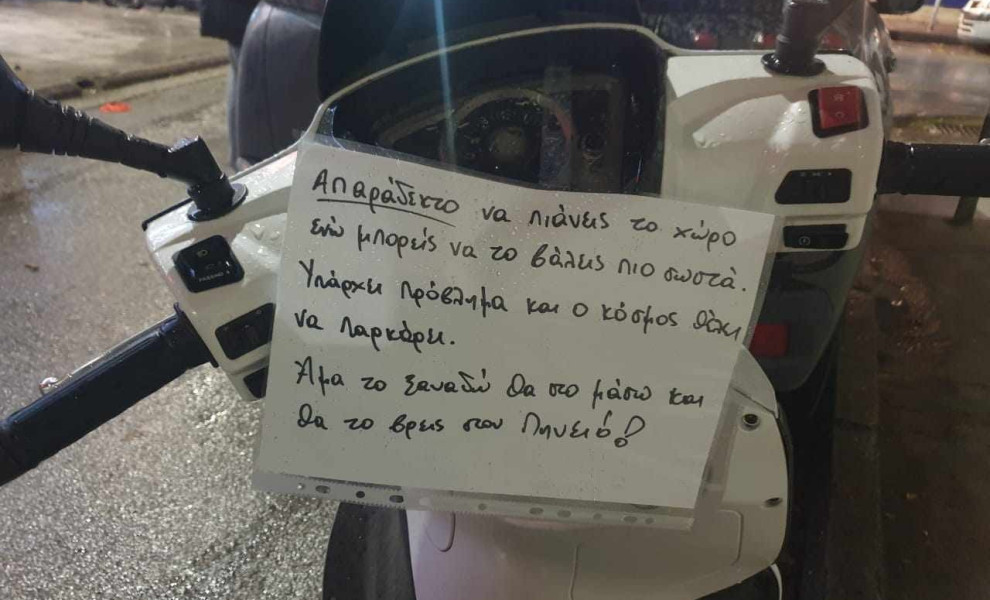 Απαράδεκτο να πιάνεις το χώρο
ενώ μπορείς να το βάλεις πιο σωστά.
Υπάρχει πρόβλημα και ο κόσμος θέλει
να παρκάρει.
Άμα το ξαναδώ θα στο μάσω και
θα το βρεις στον Πηνειό!